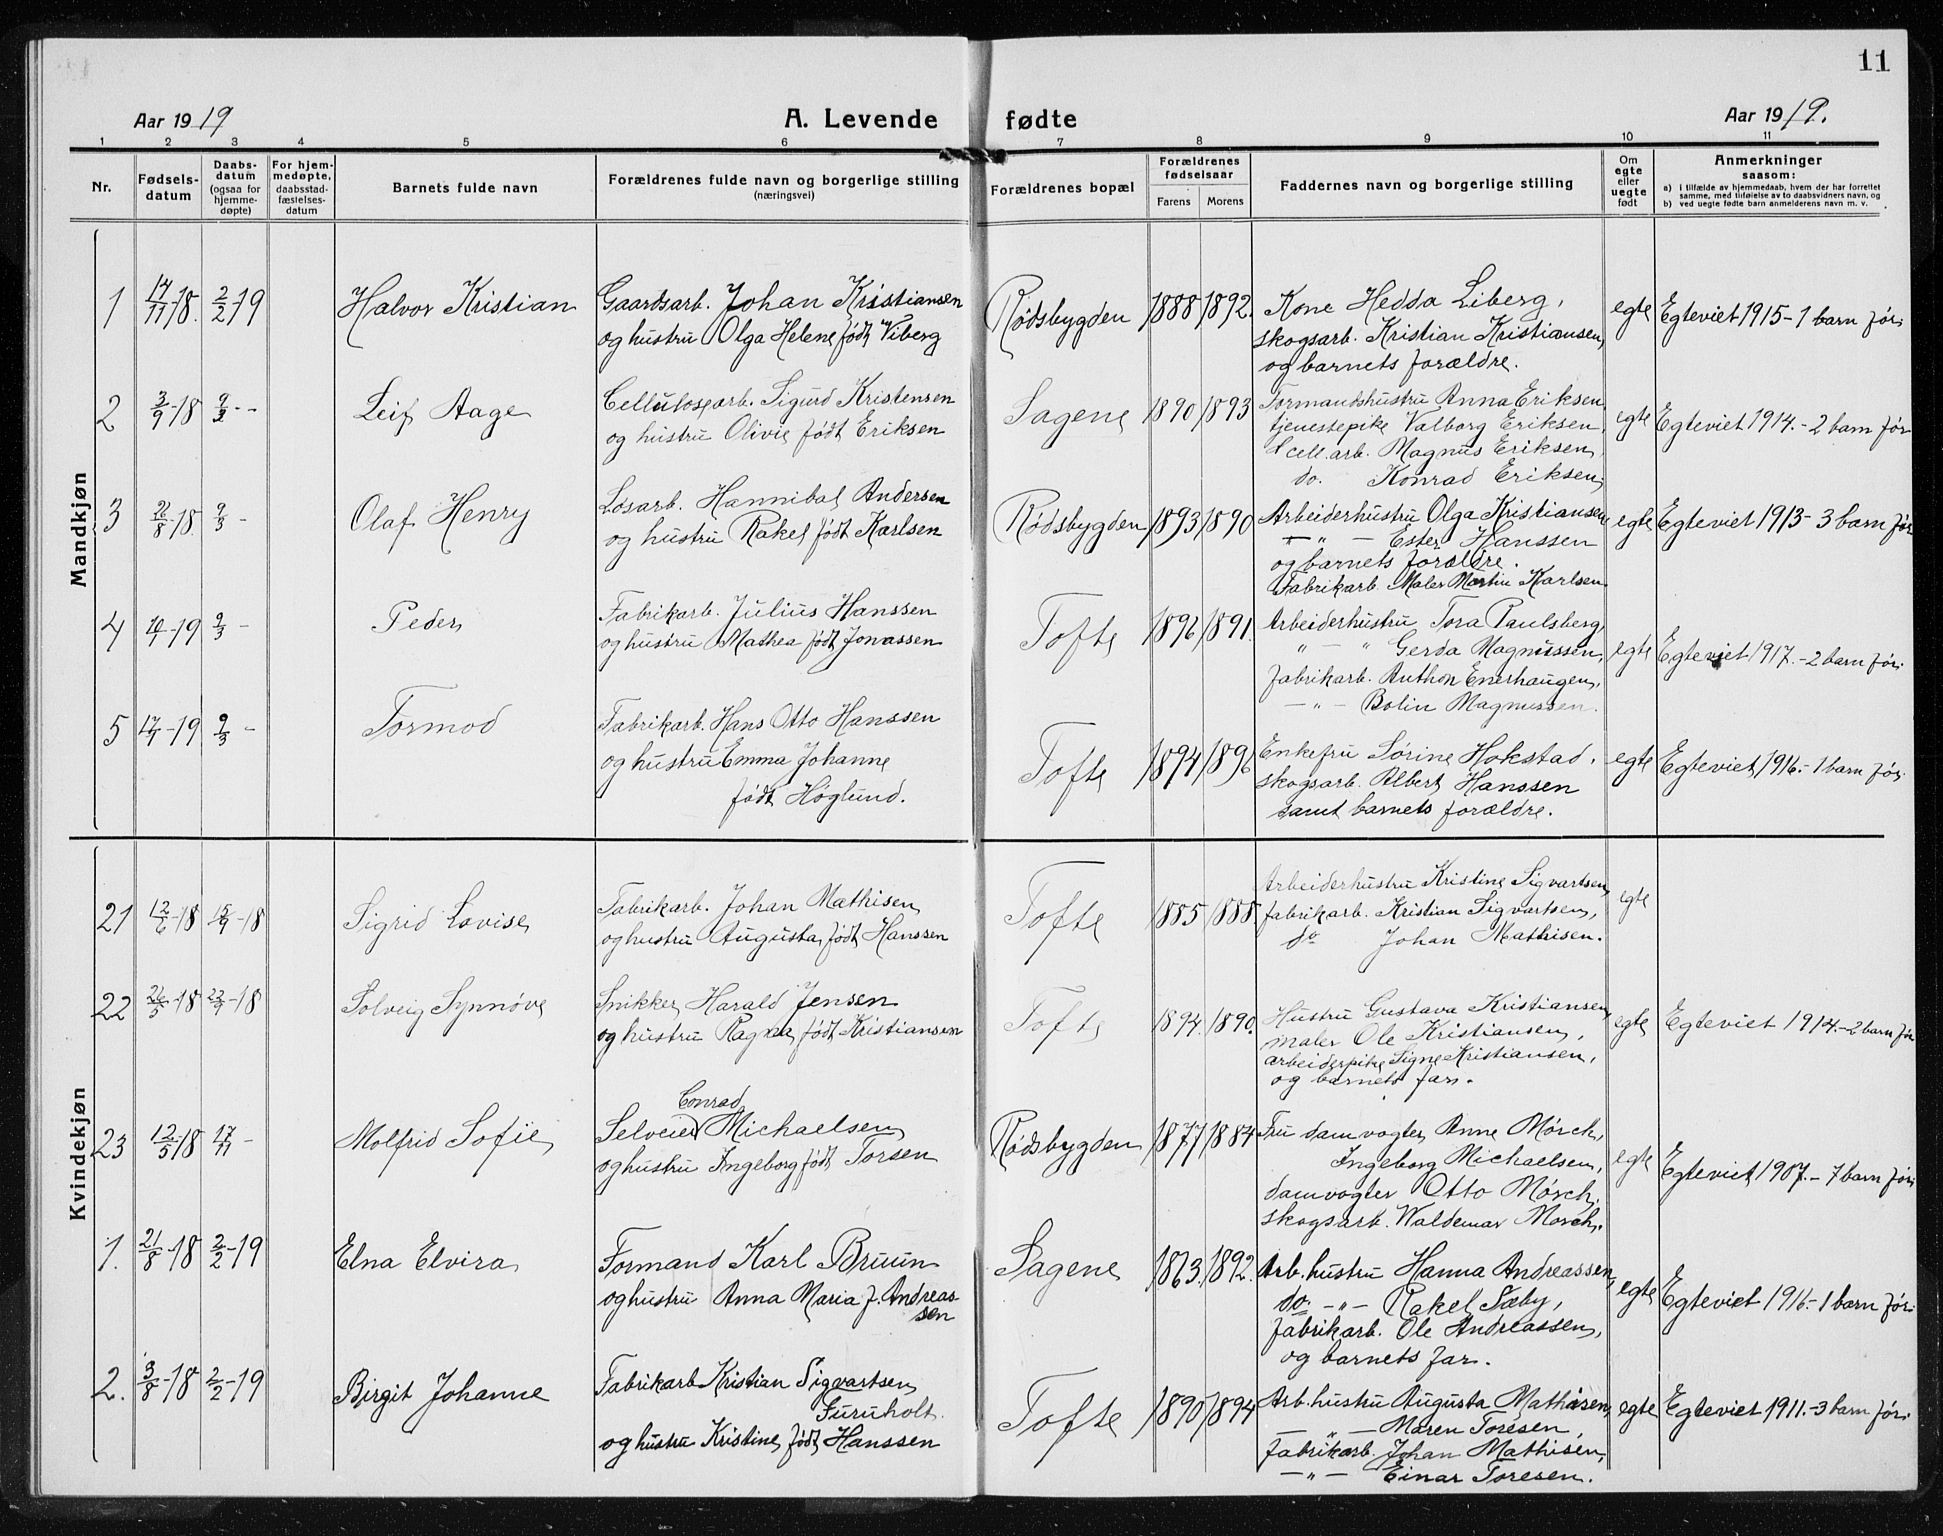 11
Aar 1919
A. Levende fødte
Aar 1919.
1 2 3 4 5 6 7 8 9 10 11
Nr.
Fødsels-
datum
Daabs-
datum
(ogsaa for
hjemme-
døpte)
For hjem-
medøpte,
daabsstad-
fæstelses-
datum
Barnets fulde navn
Forældrenes fulde navn og borgerlige stilling
(næringsvei)
Forældrenes bopæl
Forældrenes
fødselsaar
Farens Morens
Faddernes navn og borgerlige stilling
Om
egte
eller
uegte
født
Anmerkninger
saasom:
a) i tilfælde av hjemmedaab, hvem der har forrettet
samme, med tilføielse av to daabsvidners navn, og
b) ved uegte fødte barn anmelderens navn m. v.
Mandkjøn
1 17/11-18. 2/2-19 Halvor Kristian
Gaardsarb. Johan Kristiansen
og hustru Olga Helene født Viberg
Rødsbygden 1888 1892.
Kone Hedda Liberg,
skogsarb. Kristian Kristiansen,
og barnets forældre.
egte Egteviet 1915 - 1 barn før.
2 3/9-18 9/3 - - Leif Aage
Cellulosearb. Sigurd Kristensen
og hustru Olivie født Eriksen
Sagene 1890 1893
Formandshustru Anna Eriksen
tjenestepike Valborg Eriksen,
cell. arb. Magnus Eriksen,
do. Konrad Eriksen,
egte Egteviet 1914. - 2 barn før
3 26/8-18. 9/3 - Olaf Henry
Løsarb. Hannibal Andersen
og hustru Rakel født Karlsen
Rødsbygden 1893 1890
Arbeiderhustru Olga Kristiansen
— " — Ester Hanssen
og barnets forældre.
Fabrikarb. Maler Martin Karlsen
egte Egteviet 1913 - 3 barn før
4 10/1-19 9/3 - Peder
Fabrikarb. Julius Hanssen
og hustru Mathea født Jonassen
Tofte 1896 1891.
Arbeiderhustru Tora Paulsberg,
" — " Gerda Magnussen,
fabrikarb. Anthon Enerhaugen,
— " — Bolin Magnussen.
egte Egteviet 1917. - 2 barn før.
5 17/1-19 9/3 - Tormod
Fabrikarb. Hans Otto Hanssen
og hustru Emma Johanne
født Høglund.
Tofte 1894 1896
Enkefru Sørine Hokstad,
skogsarb. Albert Hanssen
samt barnets forældre.
egte Egteviet 1916. - 1 barn før.
Kvindekjøn
21 12/6-18 15/9-18 Sigrid Lovise
Fabrikarb. Johan Mathisen
og hustru Augusta født Hanssen
Tofte 1885 1888
Arbeiderhustru Kristine Sigvartsen,
fabrikarb. Kristian Sigvartsen,
do Johan Mathisen.
egte
22 26/5-18 22/9-18 Solveig Synnøve
Snikker Harald Jensen
og hustru Ragna født Kristiansen
Tofte 1894. 1890.
Hustru Gustava Kristiansen,
maler Ole Kristiansen,
arbeiderpike Signe Kristiansen,
og barnets far.
egte Egteviet 1914. - 2 barn før
23 12/5-18 17/11 - Molfrid Sofie
Conrad
Selveier Michaelsen
og hustru Ingeborg født Torsen
Rødsbygden 1877 1884
Fru damvogter Anne Mørch,
Ingeborg Michaelsen,
damvogter Otto Mørch,
skogsarb. Waldemar Mørch.
egte Egteviet 1907. - 7 barn før
1. 21/8-18 2/2-19 Elna Elvira
Formand Karl Bruun
og hustru Anna Maria f. Andreas-
sen
Sagene 1863. 1892.
Arb. hustru Hanna Andreassen,
do. - " - Rakel Sæby,
fabrikarb. Ole Andreassen,
og barnets far.
egte Egteviet 1916. - 1 barn før.
2. 3/8-18 2/2-19 Birgit Johanne
Fabrikarb Kristian Sigvartsen
Furuholt.
og hustru Kristine født Hanssen
Tofte 1890 1894
Arb. hustru Augusta Mathisen,
— " — Maren Toresen,
fabrikarb. Johan Mathisen,
— " — Einar Toresen.
egte Egteviet 1911. - 3 barn før.